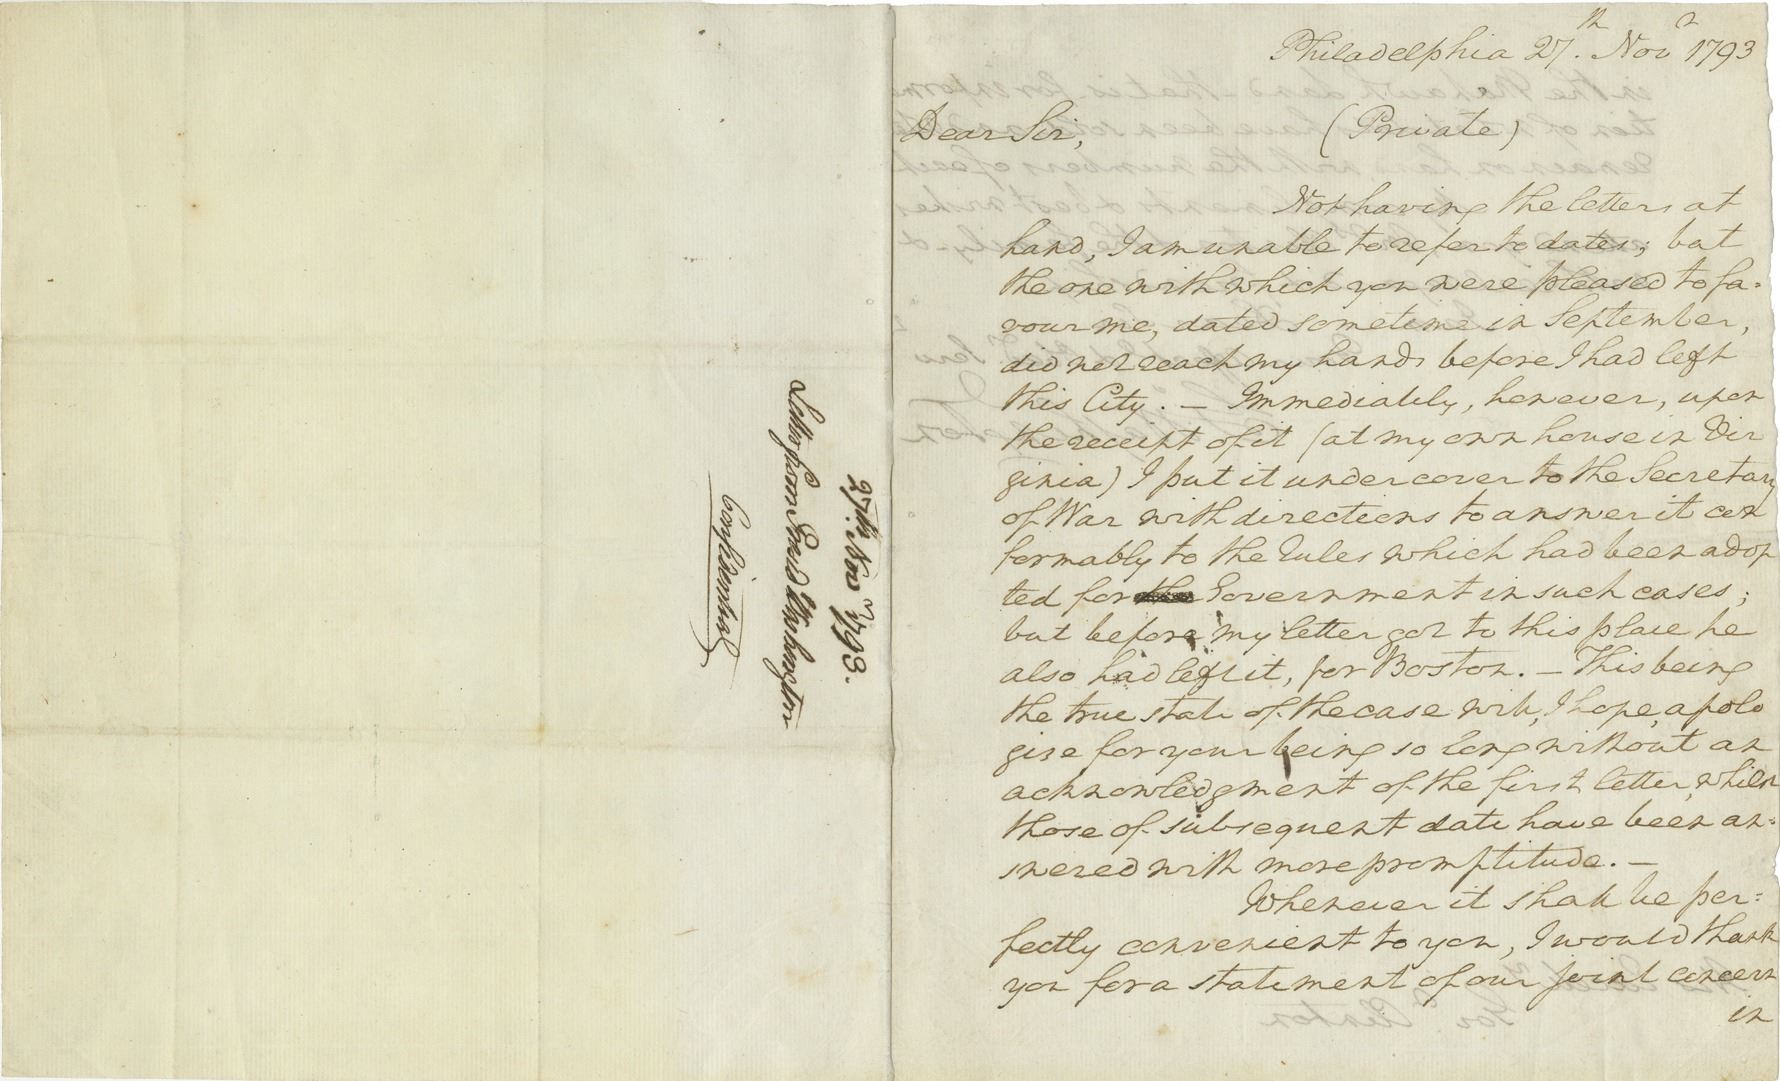 27th. Nov.r 1793.
Letter from Presid Washington
Confidential
Philadelphia 27th. Novr 1793
Dear Sir, (Private)
Not having the letters at
hand, I am unable to refer to dates; but
the one with which you were pleased to fa-
vour me, dated sometime in September,
did not reach my hands before I had left
this City. — Immediately, however, upon
the receipt of it (at my own house in Vir
ginia) I put it under cover to the Secretary
of War with directions to answer it con
formably to the rules which had been adop
ted for the Government in such cases;
but before my letter got to this place he
also had left it, for Boston. — This being
the true state of the case will, I hope, apolo
gise for your being so long without an
acknowledgment of the first letter, whilst
those of subsequent date have been an-
swered with more promptitude. —
Whenever it shall be per=
fectly convenient to you, I would thank
you for a statement of our joint concern
in